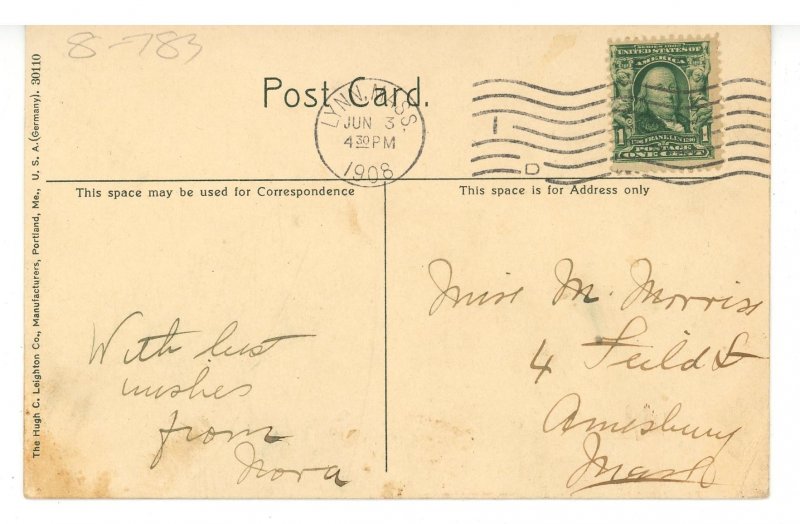 8-783
Post Card.
LYNN, MASS.
JUN 3
4 30 PM
1908
1
D
SERIES 1902
UNITED STATES OF
AMERICA
1 FRANKLIN 1
POSTAGE
ONE CENT
This space may be used for Correspondence
This space is for Address only
With best
wishes
from
Nora
Miss M. Morriss
4 Feild St
Amesbury
Mass
The Hugh C. Leighton Co., Manufacturers, Portland, Me., U. S. A. (Germany). 30110